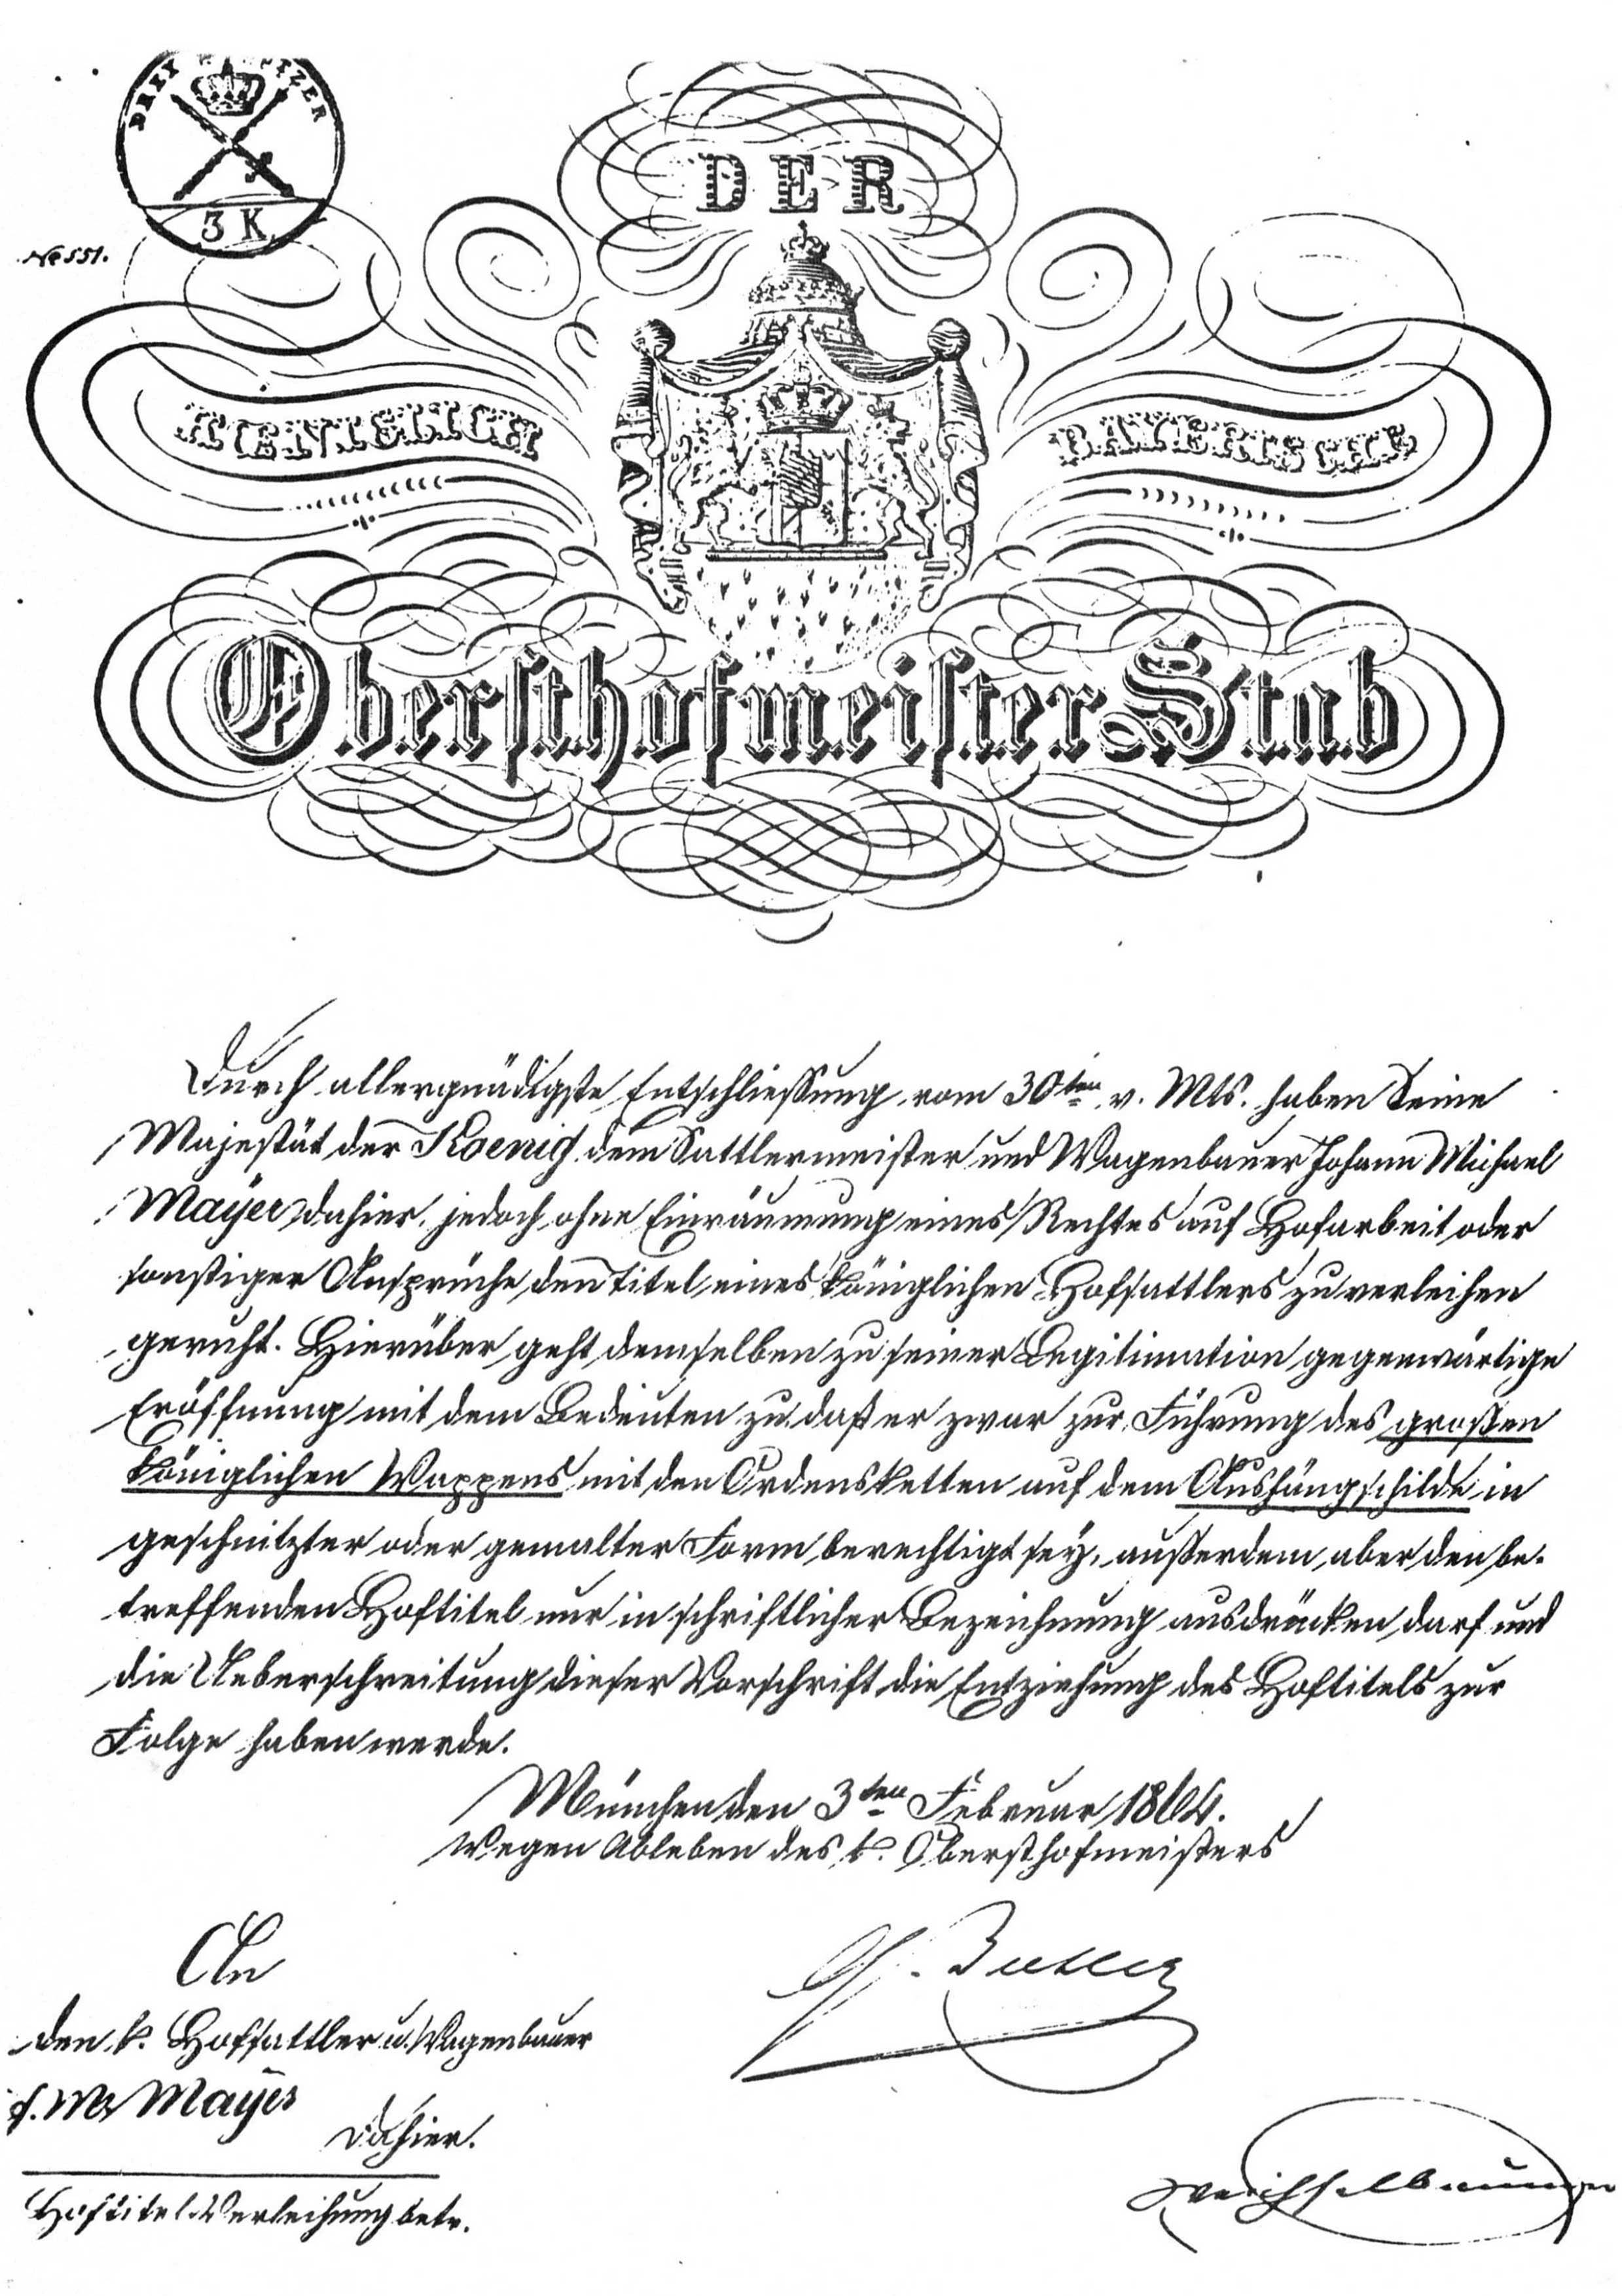 DREI KREUZER
3 K
No 551.
DER
KOENIGLICH BAYERISCHE
Obersthofmeister-Stab
Durch allergnädigste Entschliessung vom 30ten v. Mts. haben Seine
Majestät der Koenig dem Sattlermeister und Wagenbauer Johann Michael
Mayer dahier, jedoch ohne Einräumung eines Rechtes auf Hofarbeit oder
sonstiger Ansprüche den Titel eines königlichen Hofsattlers zu verleihen
geruht. Hierüber geht demselben zu seiner Legitimation gegenwärtige
Eröffnung mit dem Bedeuten zu, daß er zwar zur Führung des großen
königlichen Wappens mit den Ordensketten auf dem Aushängschilde in
geschnitzter oder gemalter Form berechtigt sey, außerdem aber den be-
treffenden Hoftitel nur in schriftlicher Bezeichnung ausdrücken darf und
die Ueberschreitung dieser Vorschrift die Entziehung des Hoftitels zur
Folge haben werde.
München den 3ten Februar 1864.
Wegen Ableben des k. Obersthofmeisters
An
den k. Hofsattler u. Wagenbauer
J. M. Mayer
dahier.
Hoftitel-Verleihung betr.